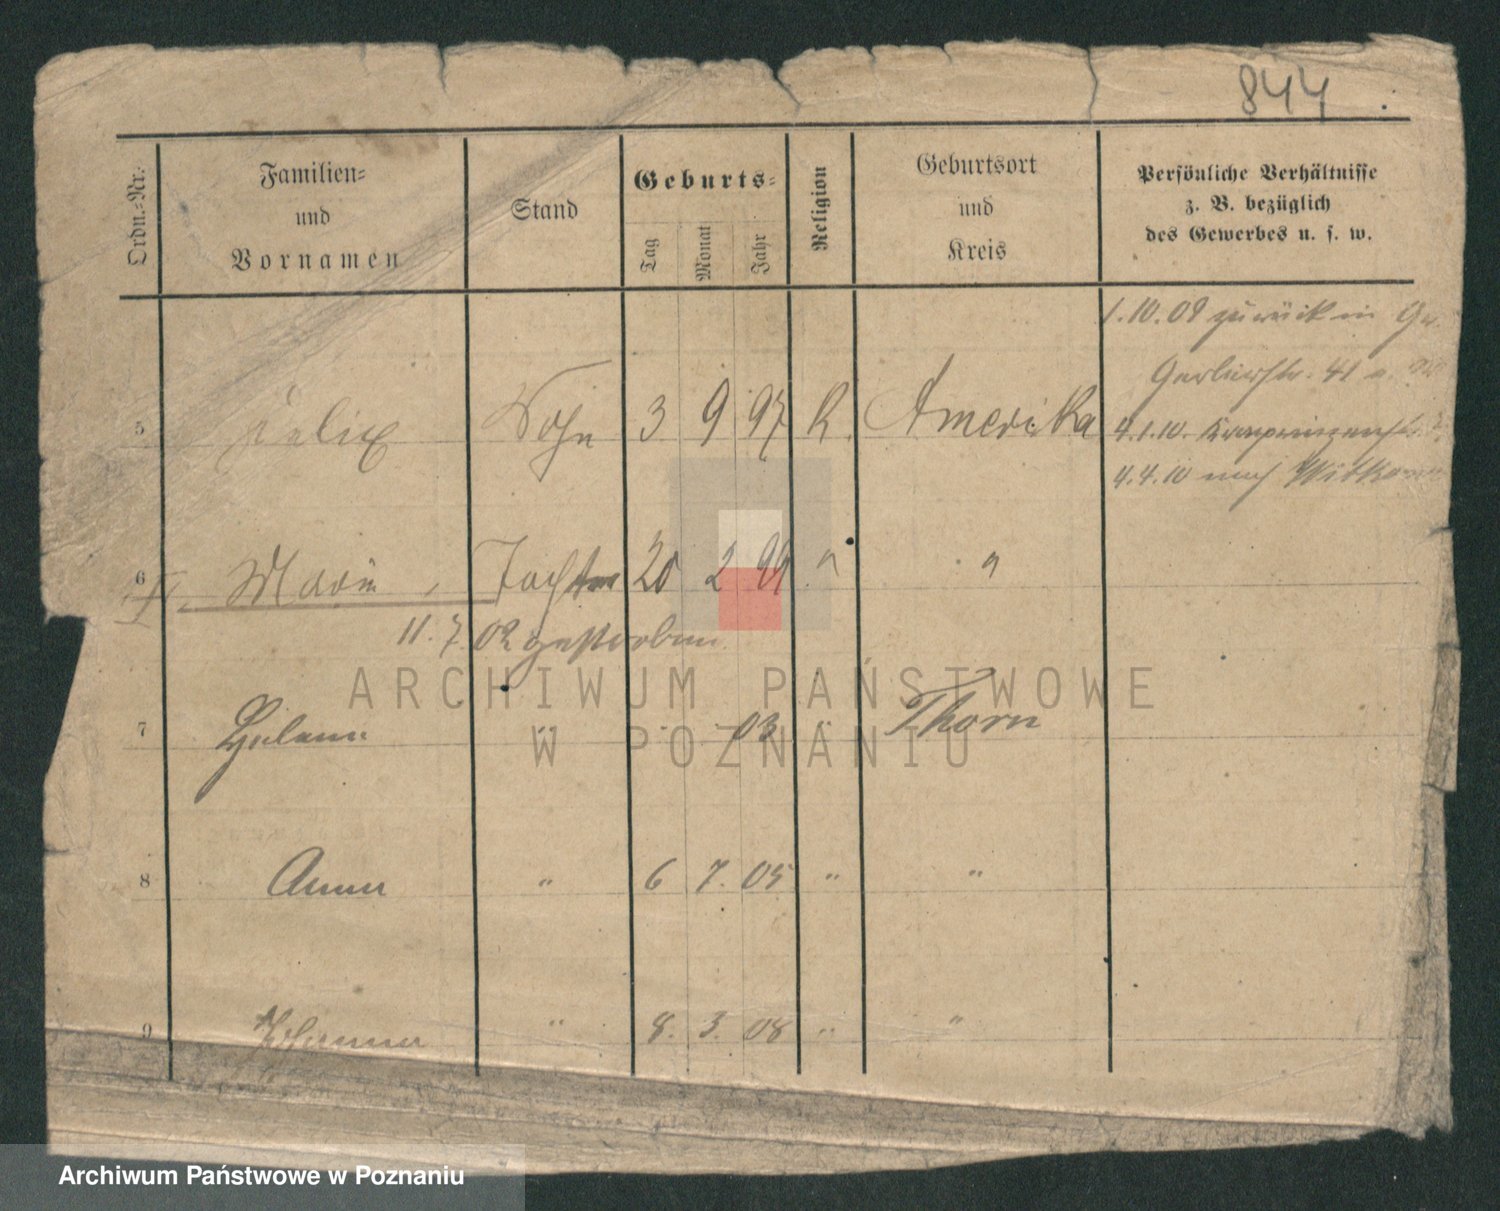 844
Ordn.-Nr.
Familien-
und
Vornamen
Stand
Geburts-
Tag
Monat
Jahr
Religion
Geburtsort
und
Kreis
Persönliche Verhältnisse
z. B. bezüglich
des Gewerbes u. s. w.
1.10.09 zurück in
41
4.1.10.
4.4.10 nach Witkowo
5 Felix Sohn 3 9 97 K. Amerika
6 Marie Tochter 20 2 99 " "
11.7.02 gestorben
7 Helene " " " 03 " Thorn
8 Anna " 6 7. 05 " "
9 Johanna " 8. 3. 08 " "
ARCHIWUM PAŃSTWOWE
W POZNANIU
Archiwum Państwowe w Poznaniu